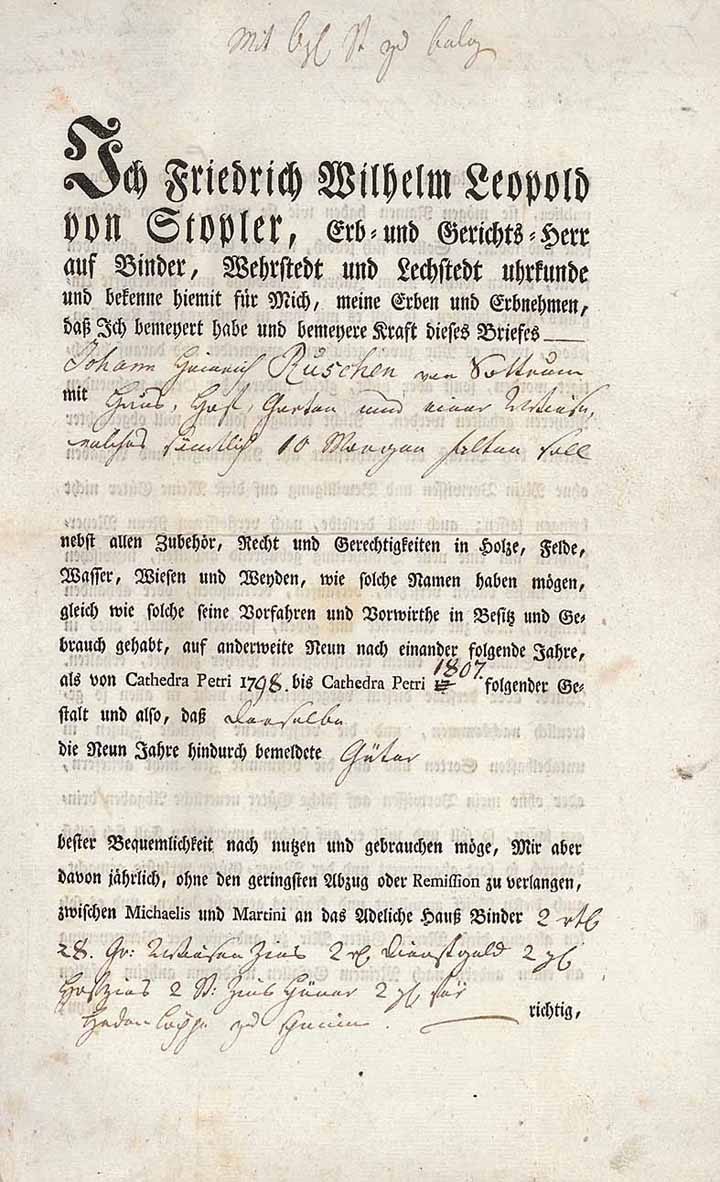 Mit
Ich Friedrich Wilhelm Leopold
von Stopler, Erb- und Gerichts-Herr
auf Binder, Wehrstedt und Lechstedt uhrkunde
und bekenne hiemit für Mich, meine Erben und Erbnehmen,
daß Ich bemeyert habe und bemeyere Kraft dieses Briefes
Johann Heinrich Ruschen von Sottrum
mit Haus, Hof, Garten und einer Wiesen,
welches sämtlich 10 Morgen halten soll
nebst allen Zubehör, Recht und Gerechtigkeiten in Holze, Felde,
Wasser, Wiesen und Weyden, wie solche Namen haben mögen,
gleich wie solche seine Vorfahren und Vorwirthe in Besitz und Ge-
brauch gehabt, auf anderweite Neun nach einander folgende Jahre,
als von Cathedra Petri 1798. bis Cathedra Petri 1807. folgender Ge-
stalt und also, daß derselbe
die Neun Jahre hindurch bemeldete Güter
bester Bequemlichkeit nach nutzen und gebrauchen möge, Mir aber
davon jährlich, ohne den geringsten Abzug oder Remission zu verlangen,
zwischen Michaelis und Martini an das Adeliche Hauß Binder 2 rtl
28. Gr: Wiesen Zins 2 Dienstgeld 2
Hofzins 2 St: Zins Hüner 2 für
richtig,